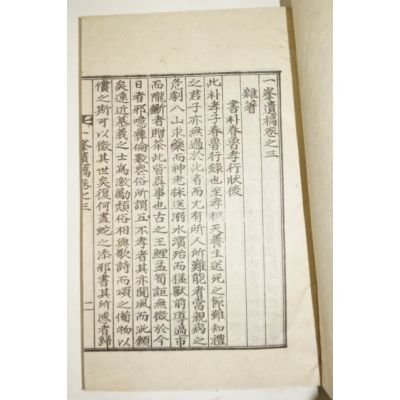 一峯遺稿卷之三
雜著
書朴春魯孝行狀後
此朴孝子春魯行錄也至孝根天養生送死之節雖知禮
之君子亦無過於此者而尤有所人所難能者當親病之
危劇入山求藥而神老採送溺水濱殆而猛獸前導過市
而隴斷者贈茶此皆異事也古之王鯉孟筍詎無徵於今
日者邪噫彝倫斁喪俗所謂五不孝者其亦聞風而泚顙
矣遠近慕義之士爲激勵頹俗相與歌詩而頌之備物以
償之斯可以徵其世矣復何畫蛇之添邪書其所感者歸
一峯遺稿卷之三
一